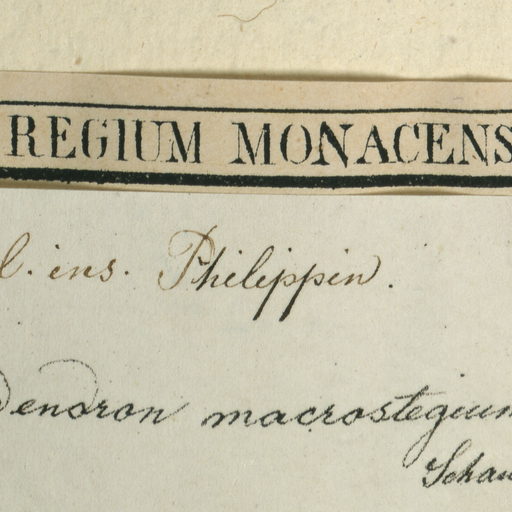 REGIUM MONACENS
l. ins. Philippin.
Dendron macrostegium
Schau